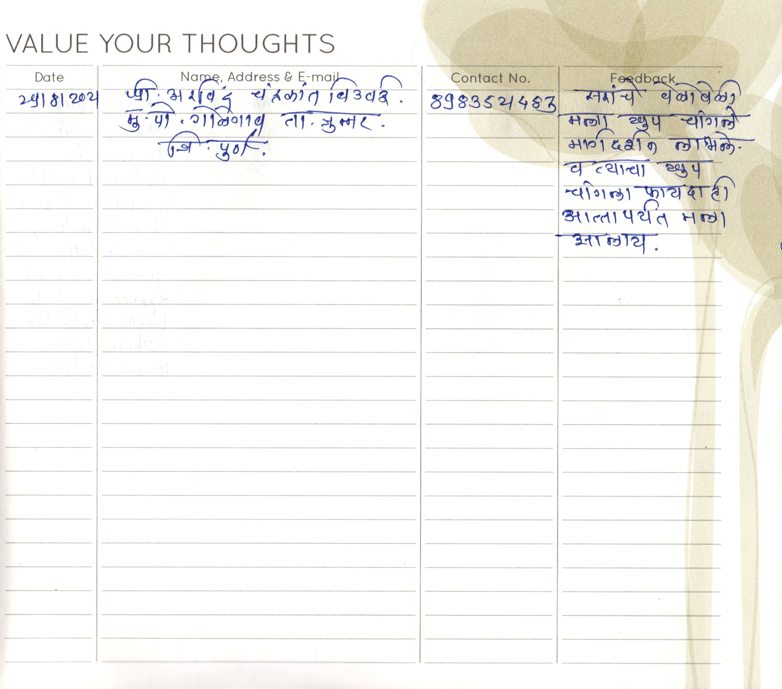 VALUE YOUR THOUGHTS
Date Name, Address & E-mail Contact No. Feedback
श्री. अरविंद चंद्रकांत
मु. पो. गोळेगाव ता. जुन्नर.
जि. पुणे.
सरांचे वेळोवेळी
मला खुप चांगले
मार्गदर्शन लाभले.
व त्याचा खुप
चांगला फायदाही
आत्तापर्यंत मला
झालाय.